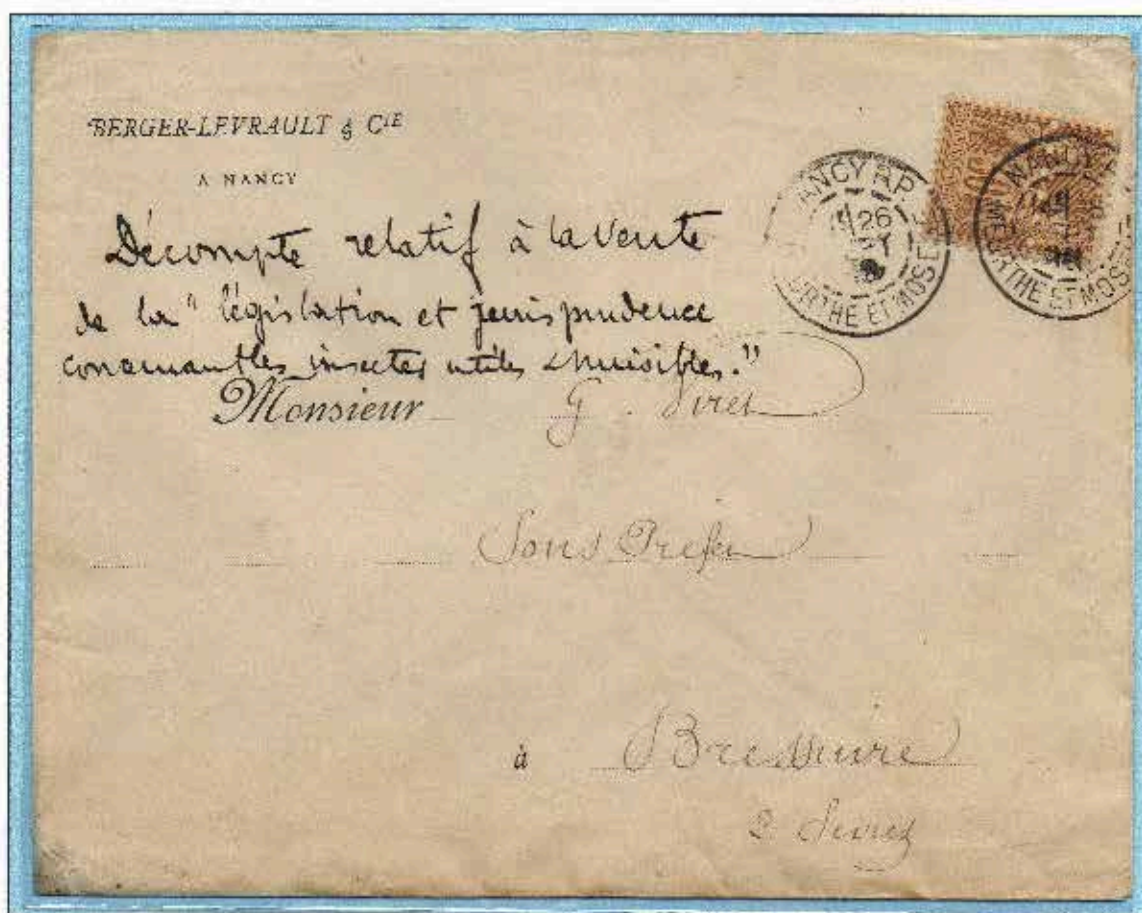 BERGER-LEVRAULT & CIE
A NANCY
Décompte relatif à la vente
de la "législation et jurisprudence
concernant les insectes utiles & nuisibles."
Monsieur G. Viret
Sous Préfet
à Bressuire
2 Sèvres
NANCY R.P.
26
MEURTHE ET MOSELLE
NANCY R.P.
MEURTHE ET MOSELLE